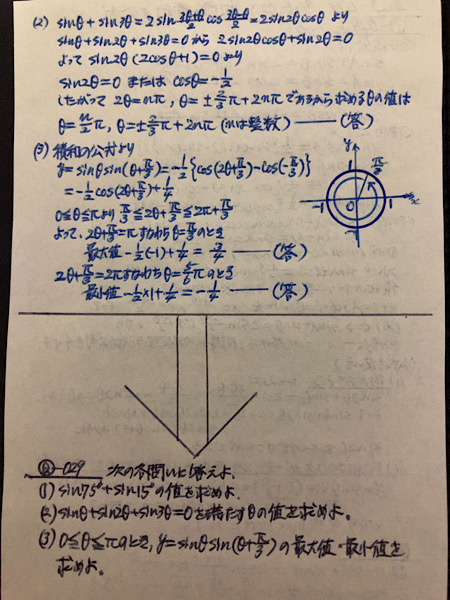 (2) sinθ + sin3θ = 2 sin (3θ+θ)/2 cos (3θ-θ)/2 = 2sin2θcosθ より
sinθ+sin2θ+sin3θ=0 から 2sin2θcosθ+sin2θ=0
よって sin2θ(2cosθ+1)=0 より
sin2θ=0 または cosθ=-1/2
したがって 2θ=nπ, θ=±2/3π+2nπ であるから求めるθの値は
θ=n/2π, θ=±2/3π+2nπ (nは整数) ——(答)
(3) 積和の公式より
y=sinθsin(θ+π/3)=-1/2{cos(2θ+π/3)-cos(-π/3)}
=-1/2cos(2θ+π/3)+1/4
0≦θ≦πより π/3≦2θ+π/3≦2π+π/3
よって、2θ+π/3=π すなわち θ=π/3のとき
最大値 -1/2(-1)+1/4=3/4 ——(答)
2θ+π/3=2πすなわちθ=5/6πのとき
最小値 -1/2×1+1/4=-1/4 ——(答)
y
π/3
-1
0
1
x
Q-029 次の各問いに答えよ.
(1) sin75°+sin15°の値を求めよ.
(2) sinθ+sin2θ+sin3θ=0を満たすθの値を求めよ。
(3) 0≦θ≦πのとき, y=sinθsin(θ+π/3)の最大値・最小値を
求めよ。